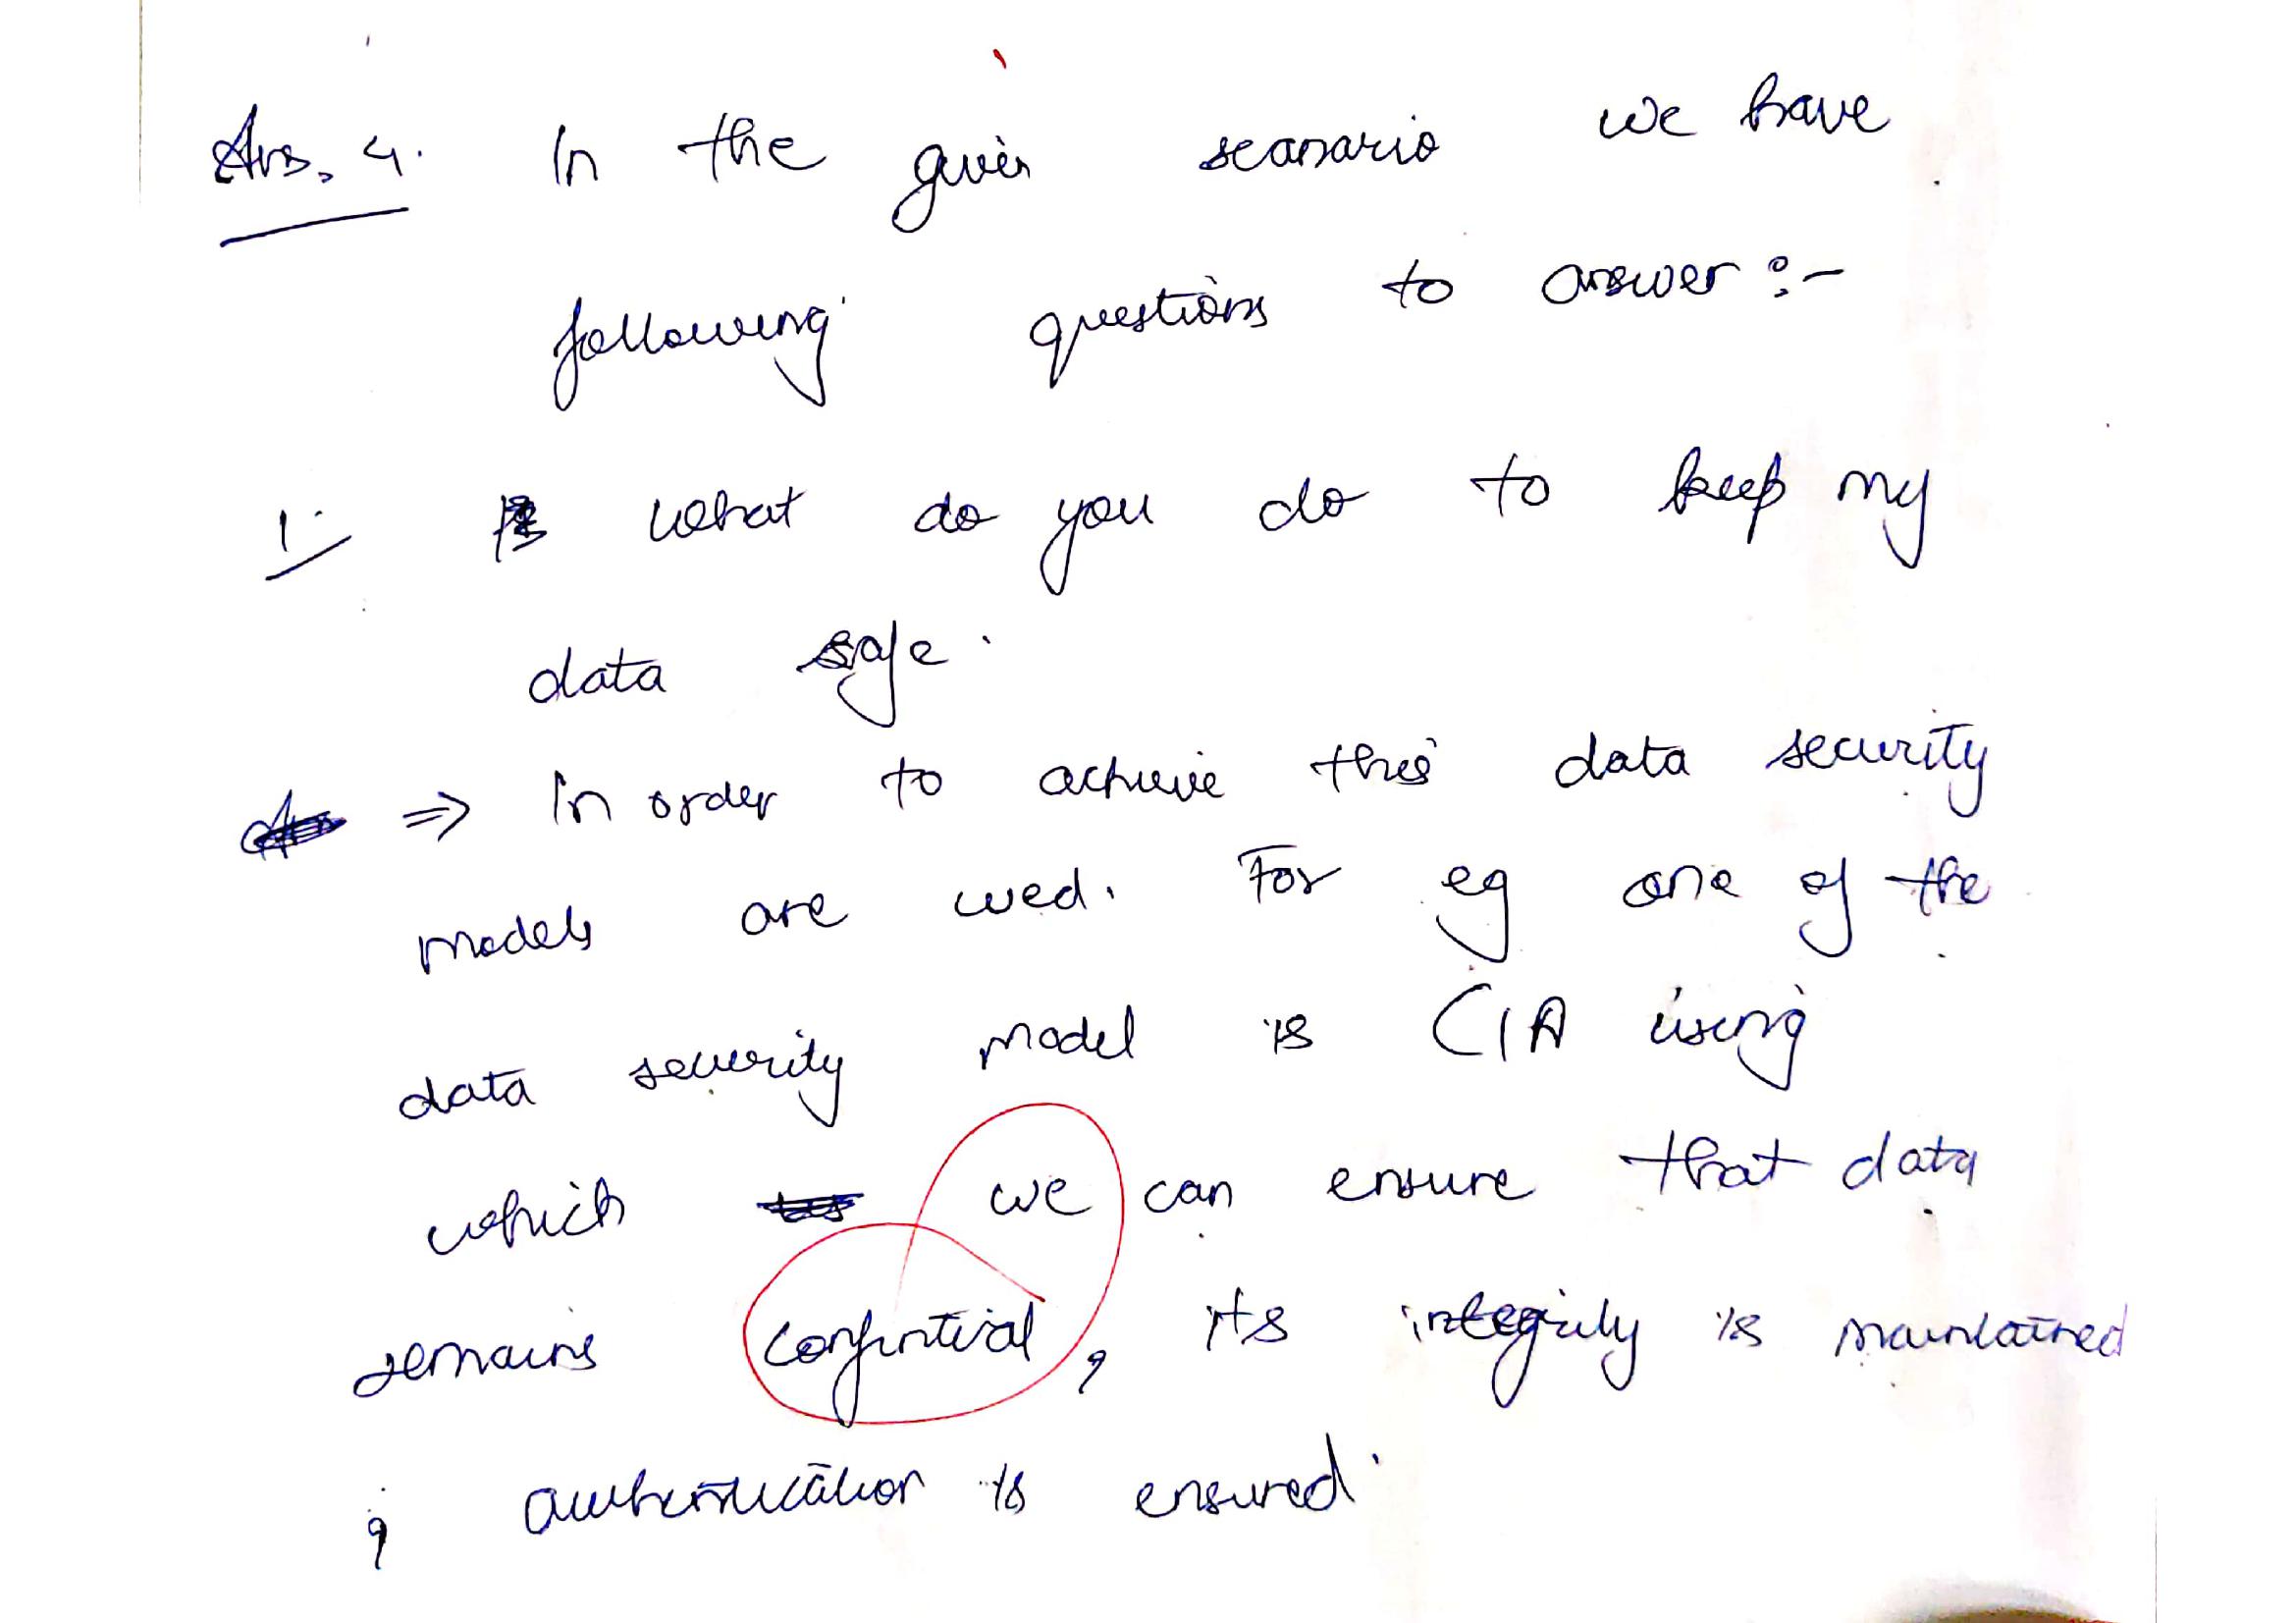 Ans. 4. In the given scanario we have
following questions to answer :-
1. what do you do to keep my
data safe.
⇒ In order to achieve this data security
models are used. For eg one of the
data security model is CIA using
which we can ensure that data
remains confintial, its integrity is maintained
; authentication is ensured.